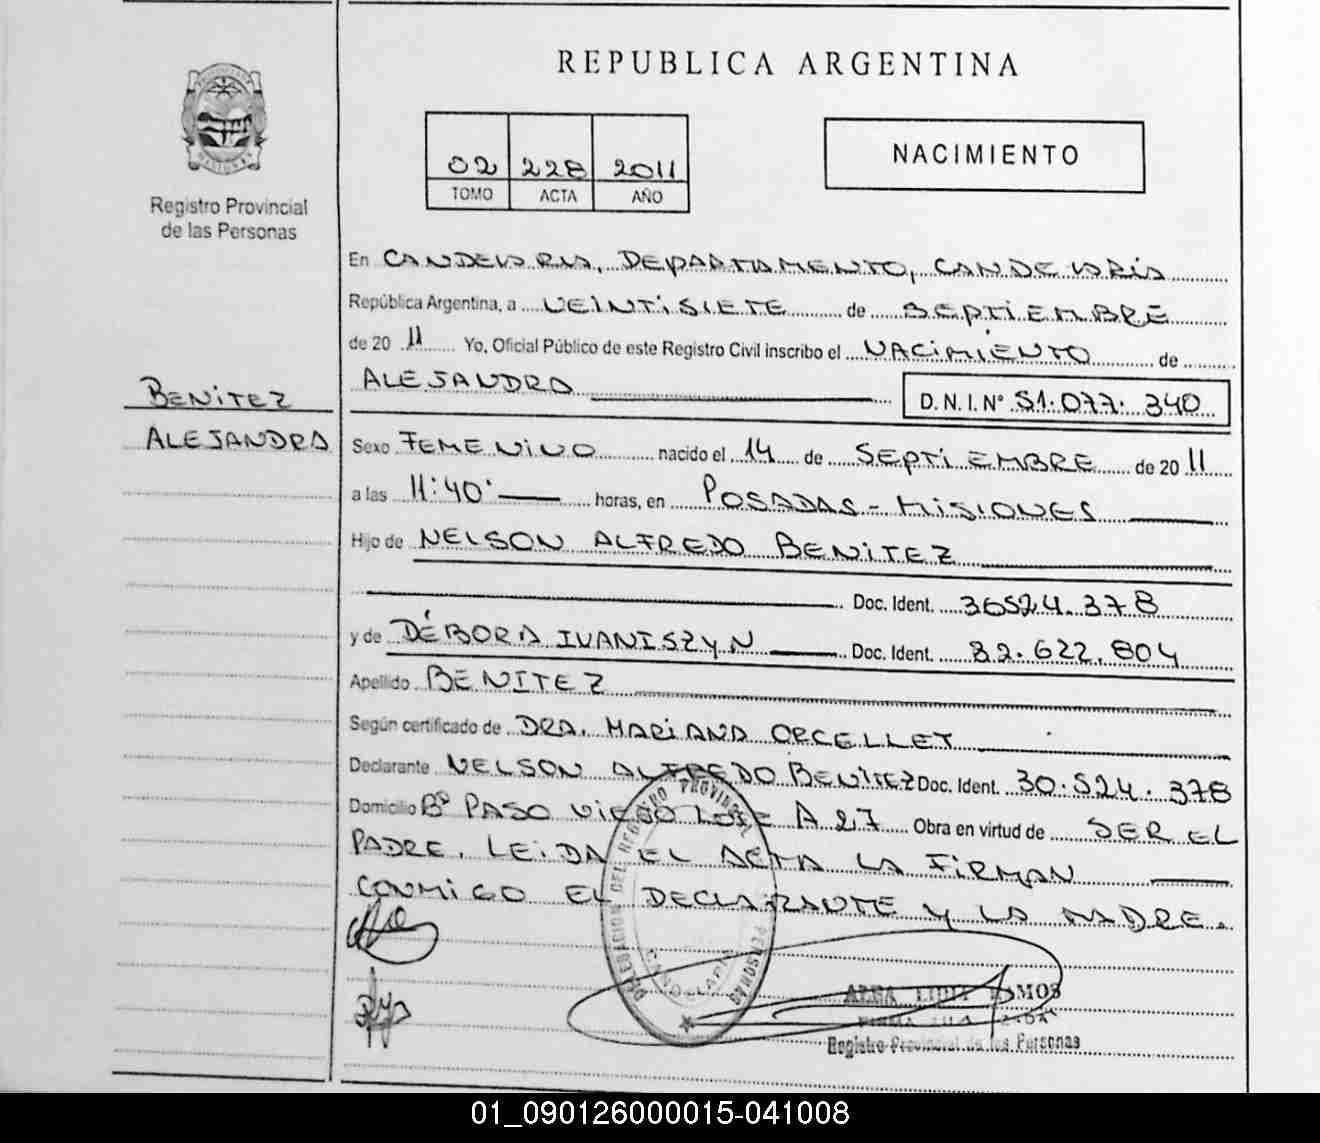 REPUBLICA ARGENTINA
02 228 2011
TOMO ACTA AÑO
NACIMIENTO
Registro Provincial
de las Personas
En CANDELARIA, DEPARTAMENTO, CANDELARIA
República Argentina, a VEINTISIETE de SEPTIEMBRE
de 20 11 Yo, Oficial Público de este Registro Civil inscribo el NACIMIENTO de
ALEJANDRA
D.N.I. Nº 51.077.340
BENITEZ
ALEJANDRA
Sexo FEMENINO nacido el 14 de SEPTIEMBRE de 20 11
a las 11:40' horas, en POSADAS - MISIONES
Hijo de NELSON ALFREDO BENITEZ
Doc. Ident. 30524.378
y de DÉBORA IVANISZYN Doc. Ident. 32.622.804
Apellido BENITEZ
Según certificado de DRA. MARIANA ORCELLET
Declarante NELSON ALFREDO BENITEZ Doc. Ident. 30.524.378
Domicilio Bº PASO VIEJO LOTE A 27 Obra en virtud de SER EL
PADRE. LEIDA EL ACTA LA FIRMAN
CONMIGO EL DECLARANTE Y LA MADRE.
DELEGACION DEL REGISTRO PROVINCIAL PERSONAS
CANDELARIA
RAMOS
Registro Provincial de las Personas
01_090126000015-041008